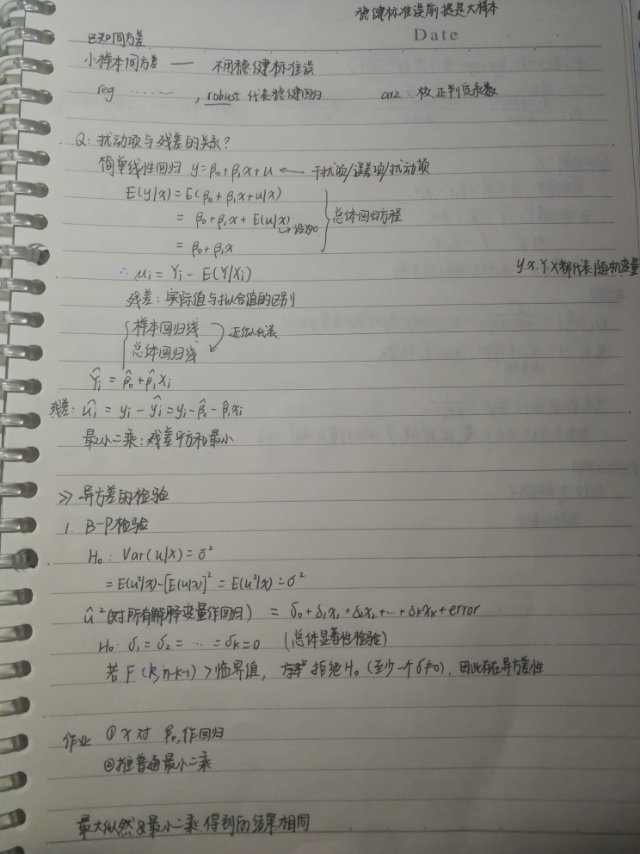 稳健标准误前提是大样本
Date
已知同方差
小样本同方差 —— 不用稳健标准误
reg ……, robust 代表稳健回归 ar2: 校正判定系数
Q: 扰动项与残差的关系?
简单线性回归 y=β₀+β₁x+u ← 干扰项/误差项/扰动项
E(y|x)=E(β₀+β₁x+u|x)
= β₀+β₁x+E(u|x) →设为0
= β₀+β₁x
总体回归方程
∴ μi = Yi − E(Y|Xi)
y.x.Y.X都代表随机变量
残差: 实际值与拟合值的区别
样本回归线
总体回归线
近似代表
Ŷi = β̂₀+β̂₁Xi
残差: ûi = yi − ŷi = yi − β̂₀ − β̂₁xi
最小二乘: 残差平方和最小
>> 异方差的检验
1. B-P检验
H₀: Var(u|x)=σ²
=E(u²|x)-[E(u|x)]²=E(u²|x)=σ²
û²(对所有解释变量作回归) = δ₀+δ₁x₁+δ₂x₂+…+δₖxₖ+error
H₀: δ₁=δ₂= … =δₖ=0 (总体显著性检验)
若 F(k,n-k-1) > 临界值, 拒绝H₀(至少一个δ≠0), 因此存在异方差性
作业 ①x对 作回归
②推普通最小二乘
最大似然&最小二乘 得到的结果相同